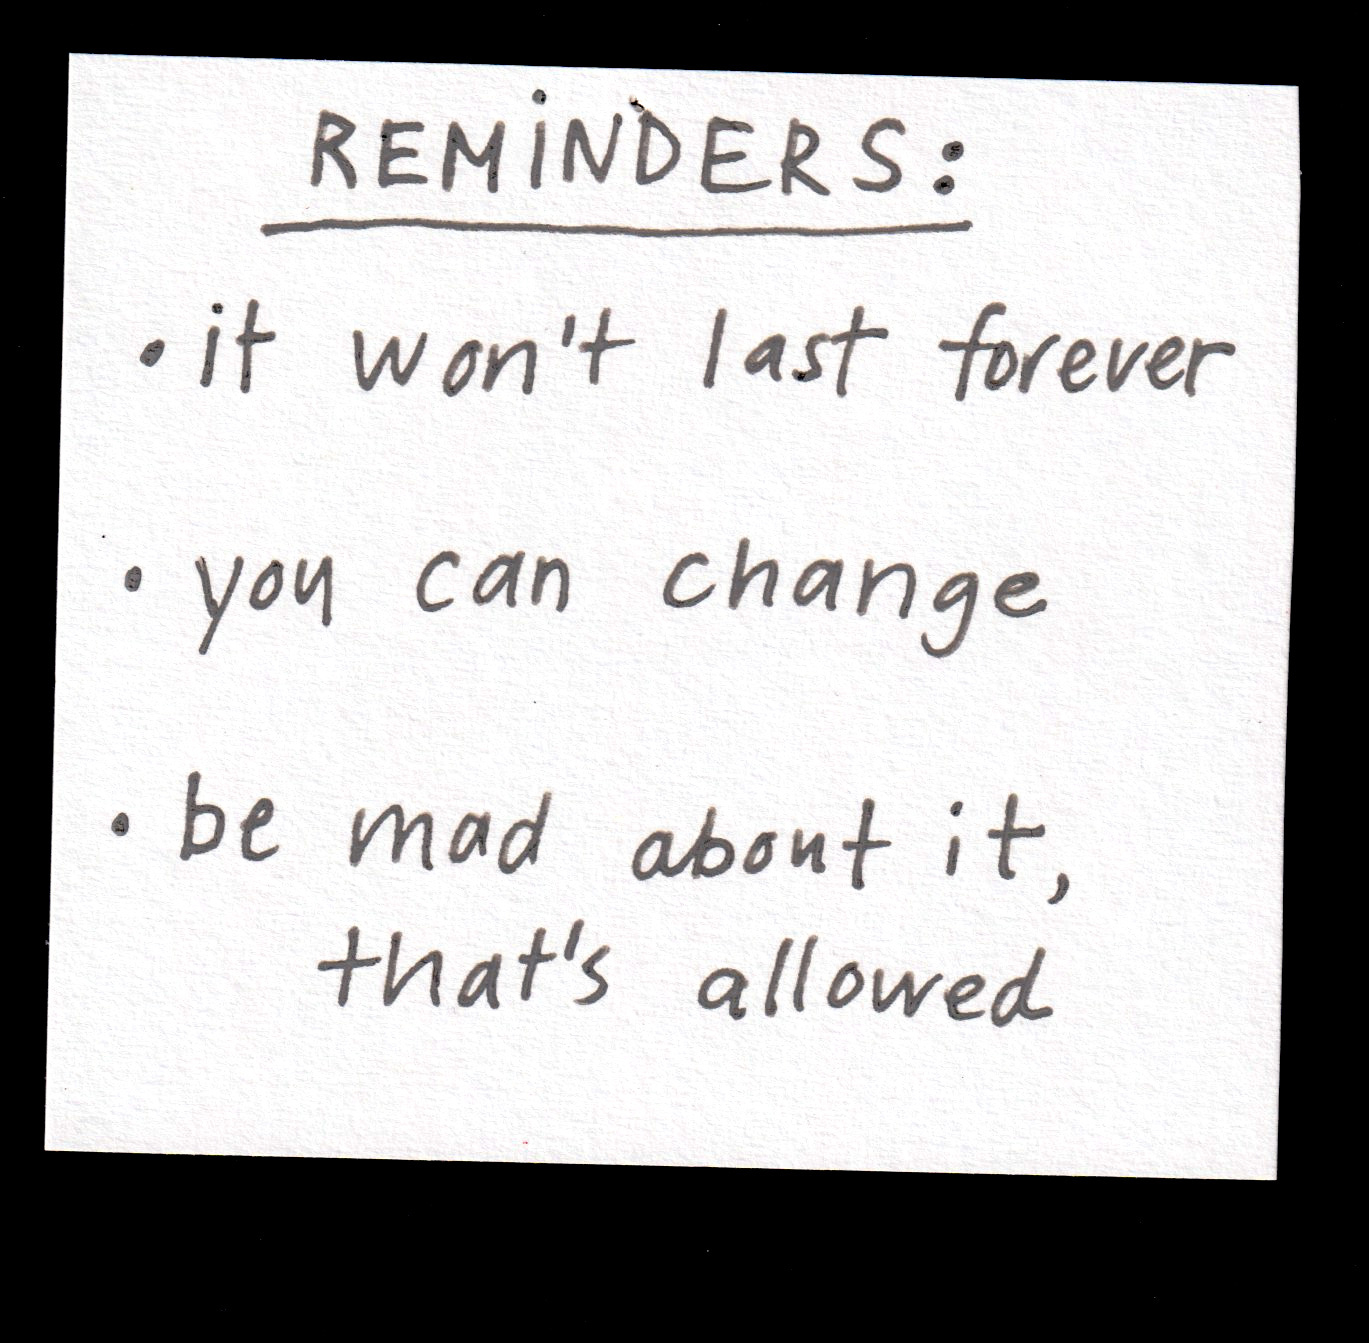 REMINDERS:
• it won't last forever
• you can change
• be mad about it,
that's allowed